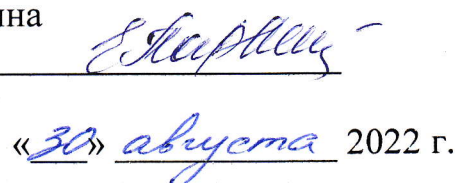 ина
«30» августа 2022 г.